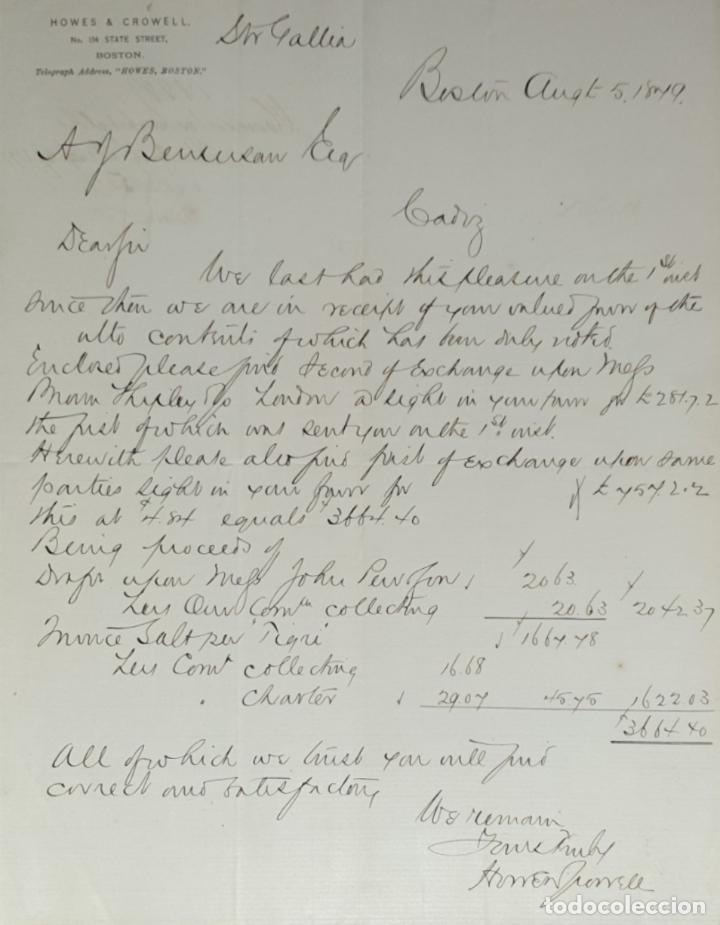 HOWES & CROWELL,
No. 134 STATE STREET,
BOSTON.
Telegraph Address, "HOWES, BOSTON."
Str Gallia
Boston Augt 5, 1879.
A J Bensusan Esq
Cadiz
Dear Sir
We last had this pleasure on the 1st inst
since then we are in receipt of your valued favor of the
ulto contents of which has been duly noted.
Enclosed please find Second of Exchange upon Messs
Brown Shipley & Co London @ sight in your favor for £281.7.2
the first of which was sent you on the 1st inst.
Herewith please also find first of Exchange upon same
parties sight in your favor for £757.2.2
this at $4.84 equals $3664.40
Being proceeds of
Drafs upon Messs John Pew & Son $ 2063.
Less Our Comn collecting 20.63 2042.37
Invoice Salt per "Tigri" $1667.78
Less Comn collecting 16.68
" Charter $ 29.07 45.75 1622.03
$3664.40
All of which we trust you will find
correct and satisfactory
We remain
Yours Truly
Howes & Crowell
todocoleccion
todocoleccion.net